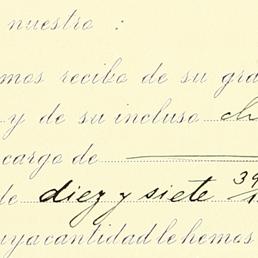 nuestro :
mos recibo de su gra
y de su incluso ch
cargo de
de diez y siete 39/
uya cantidad le hemos